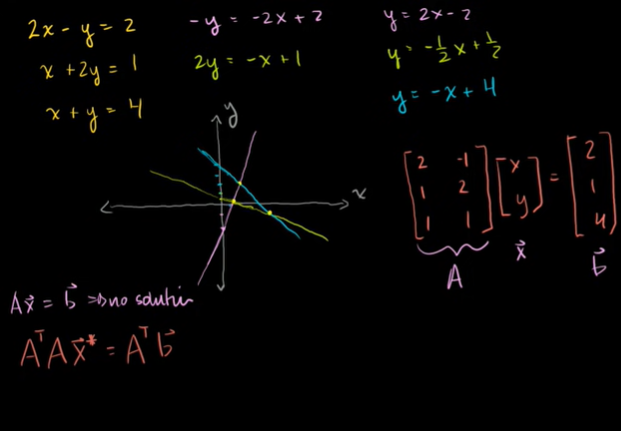 2x - y = 2
x + 2y = 1
x + y = 4
-y = -2x + 2
2y = -x + 1
y = 2x - 2
y = -½x + ½
y = -x + 4
y
x
[2 -1] [x] = [2]
[1 2] [y] [1]
[1 1] [4]
A
x⃗
b⃗
Ax⃗ = b⃗ ⇒ no solution
AᵀAx⃗* = Aᵀb⃗